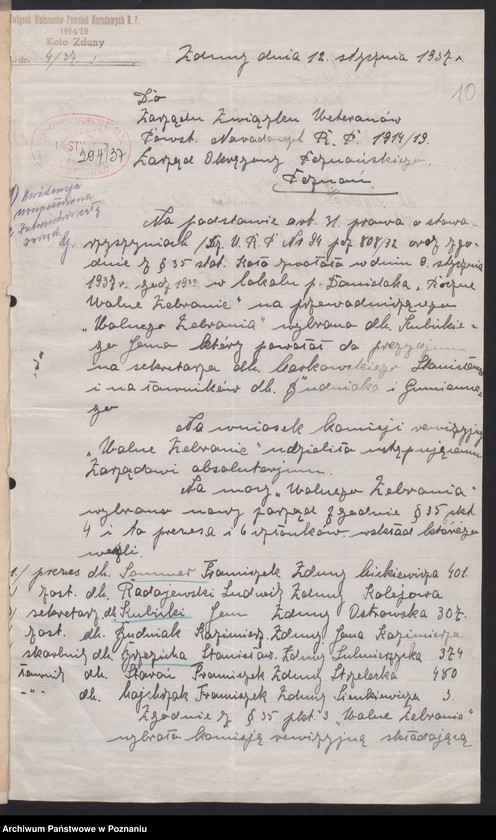 Związek Weteranów Powstań Narodowych R. P.
1914/19
Koło Zduny
4/37
Zduny dnia 12. stycznia 1937 r.
10
Do
Zarządu Związku Weteranów
Powst. Narodowych R. P. 1914/19.
Zarząd Okręgowy Poznańskiego.
Poznań.
204/37
Ewidencja
uzupełniona
Na podstawie art. 31. prawa o stowa-
rzyszeniach /Dz. U. R. P Nr 94 poz 808/32 oraz zgo-
dnie z § 35 stat. Koła zwołała w dniu 9. stycznia
1937 r. godz 19 w lokalu p. Danielaka, "Roczne
Walne Zebranie" na przewodniczącego
"Walnego Zebrania" wybrano dh. Kubickie-
go Jana który powołał do prezydjum
na sekretarza dh. Stanisława
i na ławników dh. Żudniaka i
go
Na wniosek komisji rewizyjnej
"Walne Zebranie" udzieliło ustępującemu
Zarządowi absolutorjum.
Na mocy "Walnego Zebrania"
wybrano nowy zarząd zgodnie § 35 pkt.
4 i to prezesa i 6 członków wskład którego
weszli.
1./ prezes dh. Sommer Franciszek Zduny Mickiewicza 401.
zast. dh. Radajewski Ludwik Zduny Kolejowa
sekretarz dh. Kubicki Jan Zduny Ostrowska 307.
zast. dh. Żudniak Kazimierz. Zduny Jana Kazimierza
skarbnik dh. Brzezicha Stanisław. Zduny Sulmierzycka 374
ławnik dh. Skowroń Franciszek Zduny Strzelecka 480
-"- dh. Majchrzak Franciszek Zduny Sienkiewicza 3.
Zgodnie z § 35 pkt. 3 "Walne Zebranie"
wybrało komisją rewizyjną składającą
Archiwum Państwowe w Poznaniu